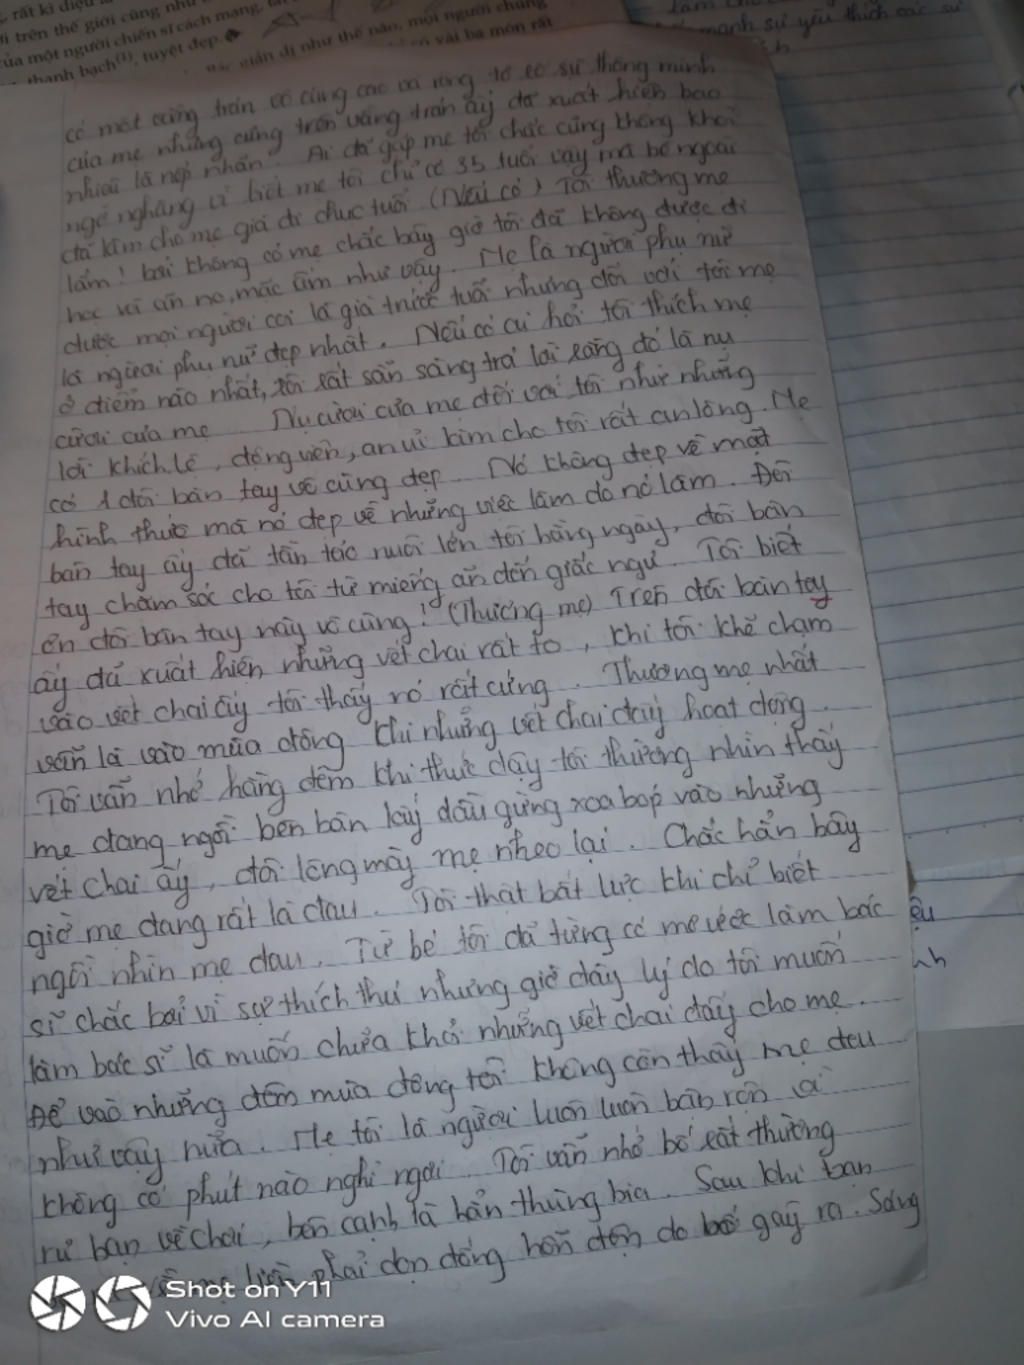 rất kì diệu
i trên thế giới cũng như
ủa một người chiến sĩ cách mạng,
thanh bạch(1), tuyệt đẹp.
giản dị như thế nào, mọi người chúng
vài ba món rất
mạnh sự yêu thích các sự
có một vầng trán vô cùng cao và rộng tỏ rõ sự thông minh
của mẹ nhưng cũng trên vầng trán ấy đã xuất hiện bao
nhiêu là nếp nhăn. Ai đã gặp mẹ tôi chắc cũng không khỏi
ngỡ nghàng vì biết mẹ tôi chỉ có 35 tuổi vậy mà bề ngoài
đã kím cho mẹ già đi chục tuổi (Nếu có) Tôi thương mẹ
lắm! bởi không có mẹ chắc bây giờ tôi đã không được đi
học và ăn no, mặc ấm như vậy. Mẹ là người phụ nữ
được mọi người coi là già trước tuổi nhưng đối với tôi mẹ
là người phụ nữ đẹp nhất. Nếu có ai hỏi tôi thích mẹ
ở điểm nào nhất, tôi rất sẵn sàng trả lời rằng đó là nụ
cười của mẹ Nụ cười của mẹ đối với tôi như những
lời khích lệ, động viên, an ủi kím cho tôi rất an lòng. Mẹ
có 1 đôi bàn tay vô cùng đẹp. Nó không đẹp về mặt
hình thức mà nó đẹp về những việc làm do nó làm. Đôi
bàn tay ấy đã tần tảo nuôi lớn tôi hằng ngày, đôi bàn
tay chăm sóc cho tôi từ miếng ăn đến giấc ngủ. Tôi biết
ơn đôi bàn tay này vô cùng! (Thương mẹ) Trên đôi bàn tay
ấy đã xuất hiện những vết chai rất to, khi tôi khẽ chạm
vào vết chai ấy tôi thấy nó rất cứng. Thương mẹ nhất
vẫn là vào mùa đông khi những vết chai đấy hoạt động.
Tôi vẫn nhớ hằng đêm khi thức dậy tôi thường nhìn thấy
mẹ đang ngồi bên bàn lấy dầu gừng xoa bóp vào những
vết chai ấy, đôi lông mày mẹ nheo lại. Chắc hẳn bây
giờ mẹ đang rất là đau. Tôi thật bất lực khi chỉ biết
ngồi nhìn mẹ đau. Từ bé tôi đã từng có mơ ước làm bác
sĩ chắc bởi vì sự thích thú nhưng giờ đây lý do tôi muốn
làm bác sĩ là muốn chữa khỏi những vết chai đấy cho mẹ.
Để vào những đêm mùa đông tôi không còn thấy mẹ đau
như vậy nữa. Mẹ tôi là người luôn luôn bận rộn và
không có phút nào nghỉ ngơi. Tôi vẫn nhớ bố rất thường
rủ bạn về chơi, bên cạnh là hẳn thùng bia. Sau khi bạn
phải dọn đống hỗn độn do bố gây ra. Sáng
Shot on Y11
Vivo AI camera